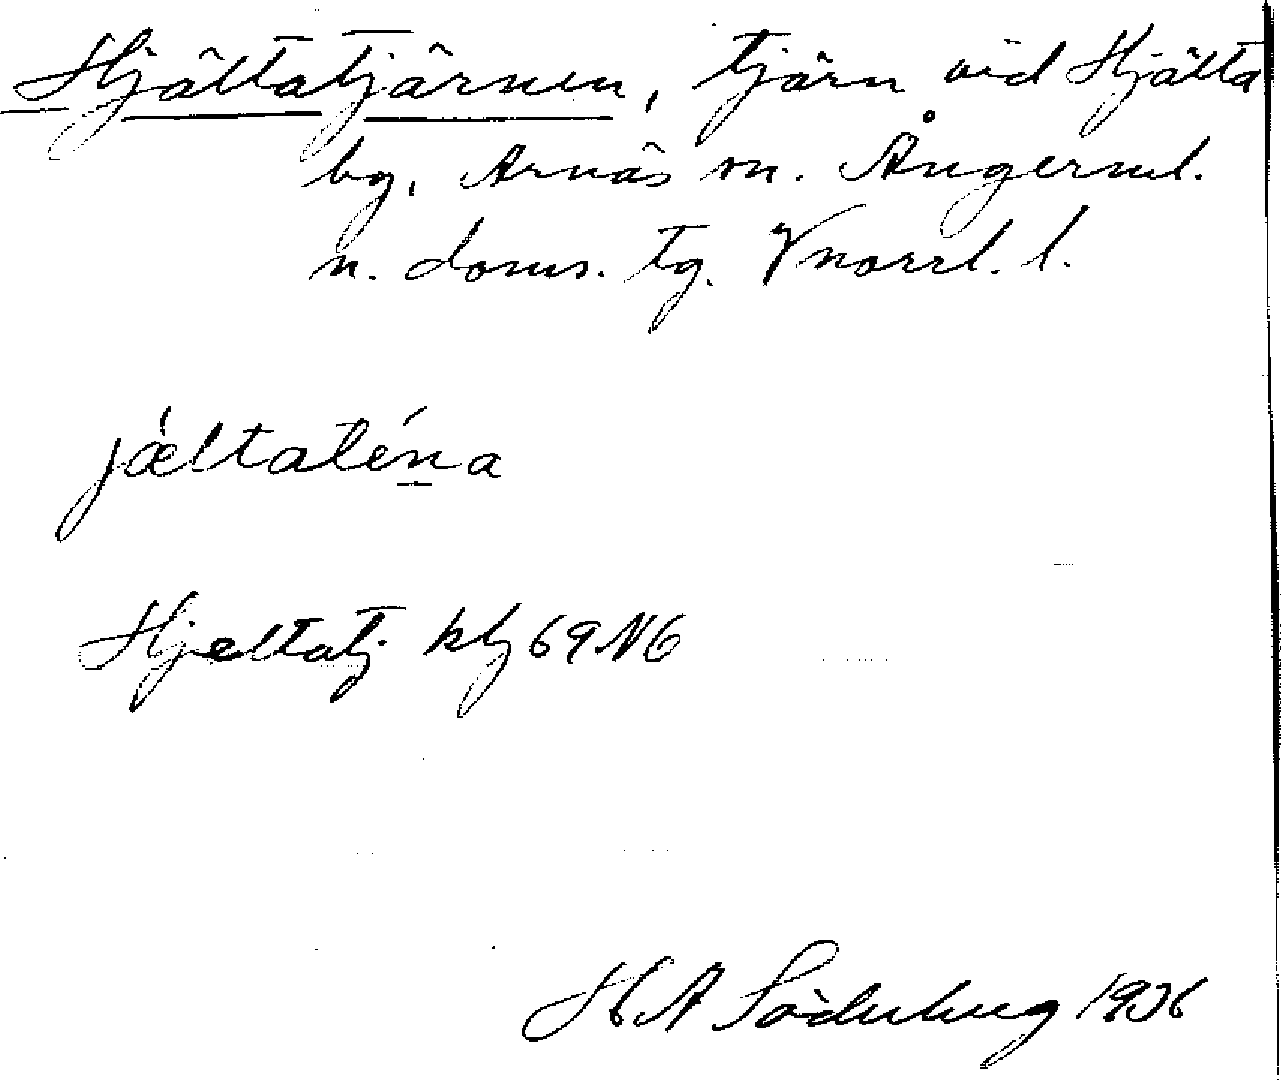 Hjältatjärnen, tjärn vid Hjälta
bg, Arnäs sn. Ångerml.
n. doms. tg. Vnorrl. l.
jǽltaténa
Hjeltatj. kbj 69 N6
H A Söderberg 1936